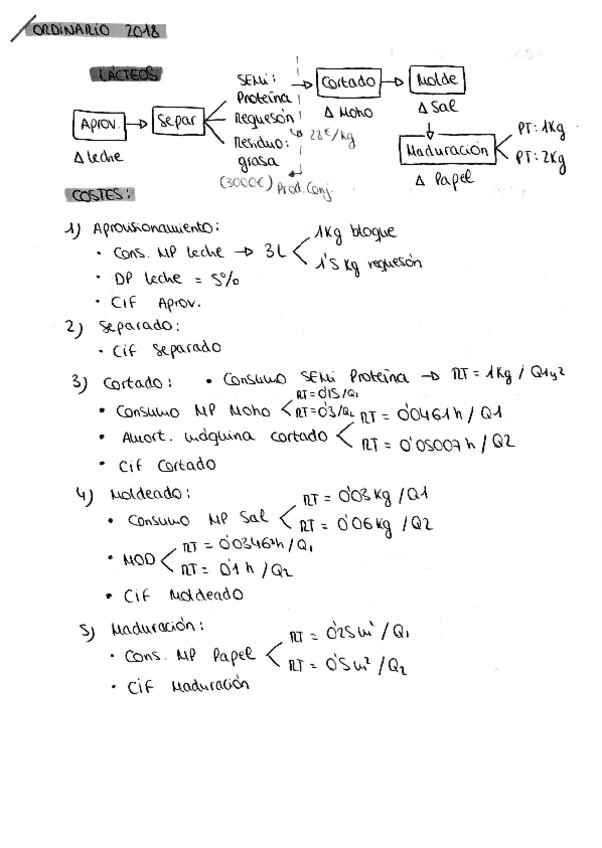 ORDINARIO 2018
LÁCTEOS
Aprov.
Δ leche
Separ
SEMi:
Proteína
Requesón
Residuo:
grasa
(3000€) Prod. Conj.
22€/kg
Cortado
Δ Moho
Molde
Δ Sal
Maduración
Δ Papel
PT: 1Kg
PT: 2Kg
COSTES:
1) Aprovisionamiento:
• Cons. MP leche → 3L
1Kg bloque
1'5 Kg requesón
• DP leche = 5%
• Cif Aprov.
2) Separado:
• Cif Separado
3) Cortado: • Consumo SEMi Proteína → RT = 1Kg / Q1y2
• Consumo MP Moho
RT = 0'15/Q1
RT = 0'3/Q2
• Amort. máquina cortado
RT = 0'0461h / Q1
RT = 0'05007h / Q2
• Cif Cortado
4) Moldeado:
• Consumo MP Sal
RT = 0'03 Kg / Q1
RT = 0'06 Kg / Q2
• MOD
RT = 0'0346h / Q1
RT = 0'1 h / Q2
• Cif Moldeado
5) Maduración:
• Cons. MP Papel
RT = 0'25 m² / Q1
RT = 0'5 m² / Q2
• Cif Maduración